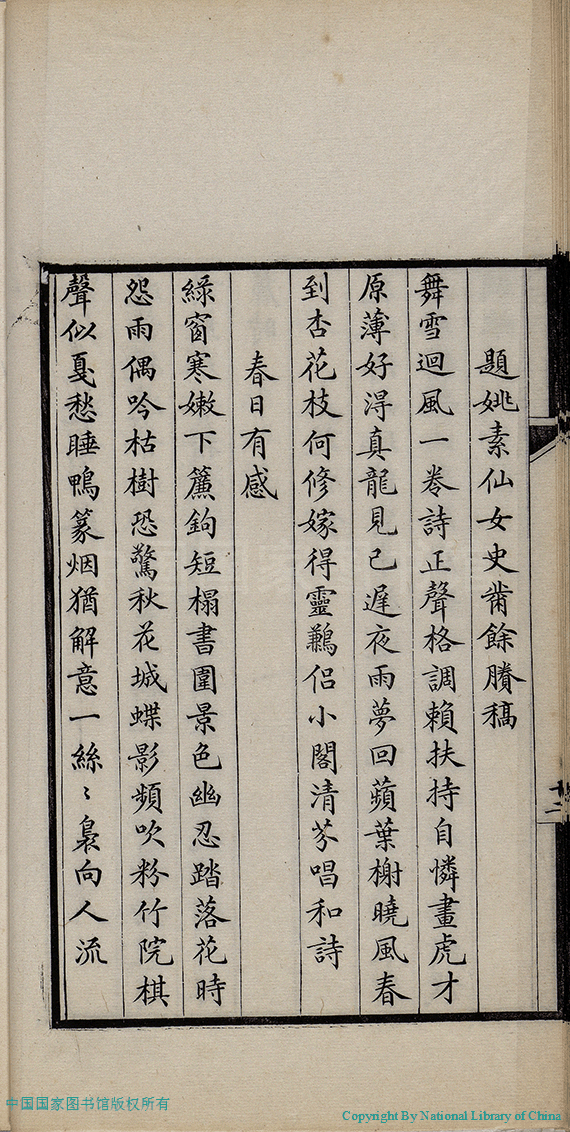 題姚素仙女史黹餘賸稿
舞雪迴風一卷詩正聲格調賴扶持自憐畫虎才
原薄好淂真龍見已遲夜雨夢回蘋葉榭曉風春
到杏花枝何修嫁得靈鶼侶小閣清芬唱和詩
春日有感
綠窗寒嫩下簾鉤短榻書圍景色幽忍踏落花時
怨雨偶吟枯樹恐驚秋花城蝶影頻吹粉竹院棋
聲似戞愁睡鴨篆烟猶解意一絲〻裊向人流
十二
中国国家图书馆版权所有
Copyright By National Library of China